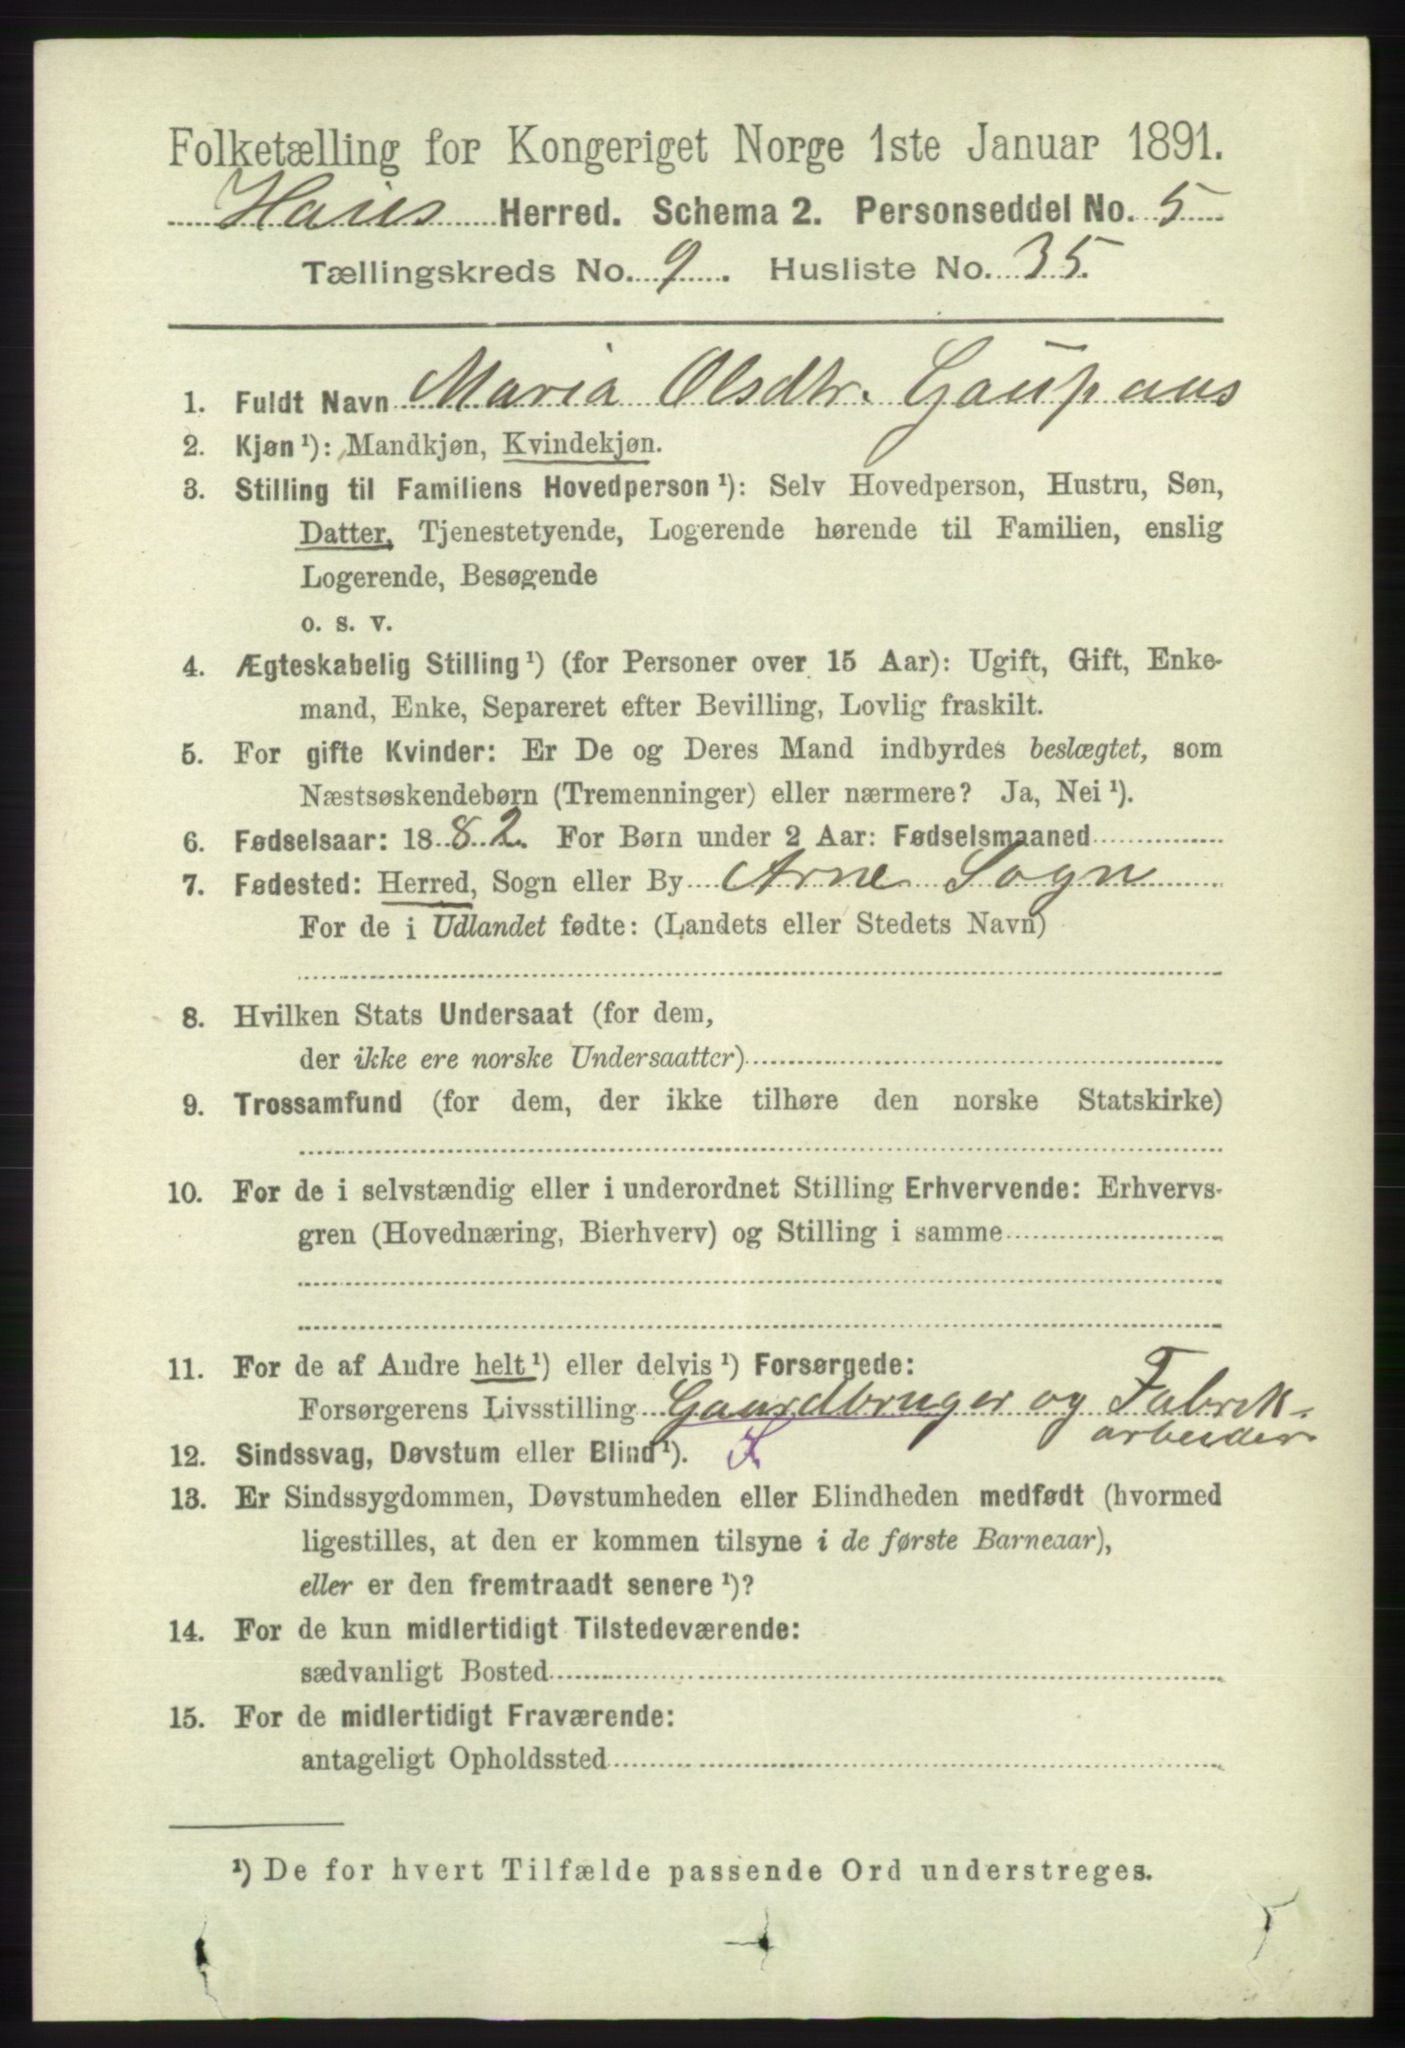 Folketælling for Kongeriget Norge 1ste Januar 1891.
Haus Herred. Schema 2. Personseddel No. 5
Tællingskreds No. 9. Husliste No. 35.
1. Fuldt Navn Maria Olsdtr. Gaupaas
2. Kjøn¹): Mandkjøn, Kvindekjøn.
3. Stilling til Familiens Hovedperson¹): Selv Hovedperson, Hustru, Søn,
Datter, Tjenestetyende, Logerende hørende til Familien, enslig
Logerende, Besøgende
o. s. v.
4. Ægteskabelig Stilling¹) (for Personer over 15 Aar): Ugift, Gift, Enke-
mand, Enke, Separeret efter Bevilling, Lovlig fraskilt.
5. For gifte Kvinder: Er De og Deres Mand indbyrdes beslægtet, som
Næstsøskendebørn (Tremenninger) eller nærmere? Ja, Nei¹).
6. Fødselsaar: 1882. For Børn under 2 Aar: Fødselsmaaned
7. Fødested: Herred, Sogn eller By Arne Sogn
For de i Udlandet fødte: (Landets eller Stedets Navn)
8. Hvilken Stats Undersaat (for dem,
der ikke ere norske Undersaatter)
9. Trossamfund (for dem, der ikke tilhøre den norske Statskirke)
10. For de i selvstændig eller i underordnet Stilling Erhvervende: Erhvervs-
gren (Hovednæring, Bierhverv) og Stilling i samme
11. For de af Andre helt¹) eller delvis¹) Forsørgede:
Forsørgerens Livsstilling Gaardbruger og Fabrik-
arbeider
12. Sindssvag, Døvstum eller Blind¹).
13. Er Sindssygdommen, Døvstumheden eller Blindheden medfødt (hvormed
ligestilles, at den er kommen tilsyne i de første Barneaar),
eller er den fremtraadt senere¹)?
14. For de kun midlertidigt Tilstedeværende:
sædvanligt Bosted
15. For de midlertidigt Fraværende:
antageligt Opholdssted
¹) De for hvert Tilfælde passende Ord understreges.